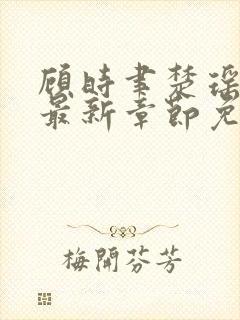 顾时聿楚瑶
最新章节免
梅開芬芳